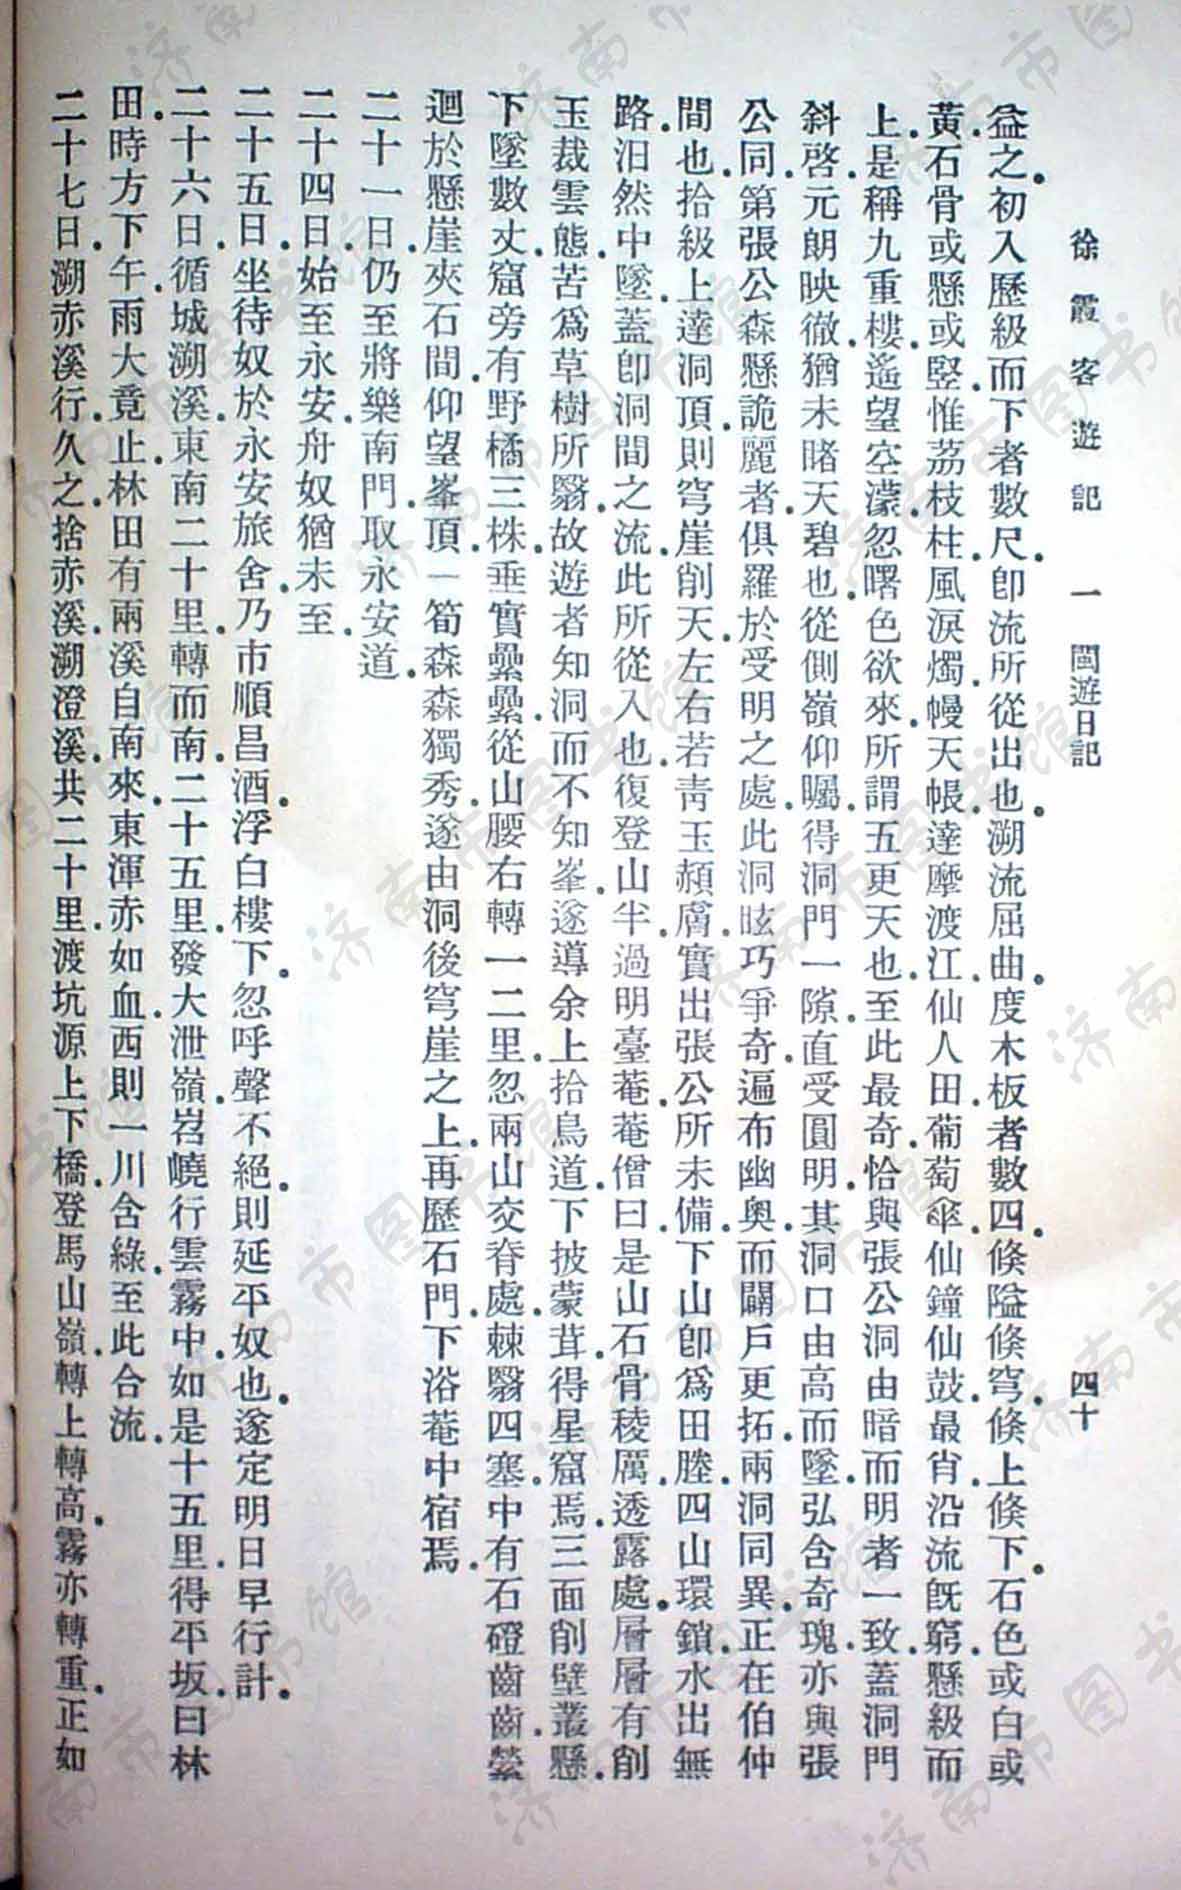 徐霞客遊記 一 閩遊日記 四十
益之初入歷級而下者數尺卽流所從出也溯流屈曲度木板者數四倏隘倏穹倏上倏下石色或白或
黃石骨或懸或竪惟荔枝柱風淚燭幔天帳達摩渡江仙人田葡萄傘仙鐘仙鼓最肖沿流旣窮懸級而
上是稱九重樓遙望空濛忽曙色欲來所謂五更天也至此最奇恰與張公洞由暗而明者一致蓋洞門
斜啓元朗映徹猶未睹天碧也從側嶺仰矚得洞門一隙直受圓明其洞口由高而墜弘含奇瑰亦與張
公同第張公森懸詭麗者俱羅於受明之處此洞眩巧爭奇遍布幽奧而闢戶更拓兩洞同異正在伯仲
間也拾級上達洞頂則穹崖削天左右若靑玉赬膚實出張公所未備下山卽爲田塍四山環鎖水出無
路汨然中墜蓋卽洞間之流此所從入也復登山半過明臺菴菴僧曰是山石骨稜厲透露處層層有削
玉裁雲態苦爲草樹所翳故遊者知洞而不知峯遂導余上拾鳥道下披蒙茸得星窟焉三面削壁叢懸
下墜數丈窟旁有野橘三株垂實纍纍從山腰右轉一二里忽兩山交脊處棘翳四塞中有石磴齒齒縈
迴於懸崖夾石間仰望峯頂一筍森森獨秀遂由洞後穹崖之上再歷石門下浴菴中宿焉
二十一日仍至將樂南門取永安道
二十四日始至永安舟奴猶未至
二十五日坐待奴於永安旅舍乃市順昌酒浮白樓下忽呼聲不絕則延平奴也遂定明日早行計
二十六日循城溯溪東南二十里轉而南二十五里發大泄嶺岧嶢行雲霧中如是十五里得平坂曰林
田時方下午雨大竟止林田有兩溪自南來東渾赤如血西則一川含綠至此合流
二十七日溯赤溪行久之捨赤溪溯澄溪共二十里渡坑源上下橋登馬山嶺轉上轉高霧亦轉重正如
济南市图书馆